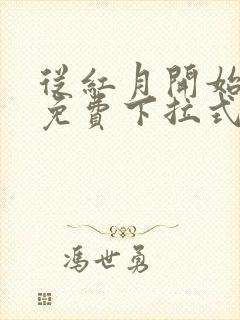 從紅月開始
免費下拉式
馮世勇